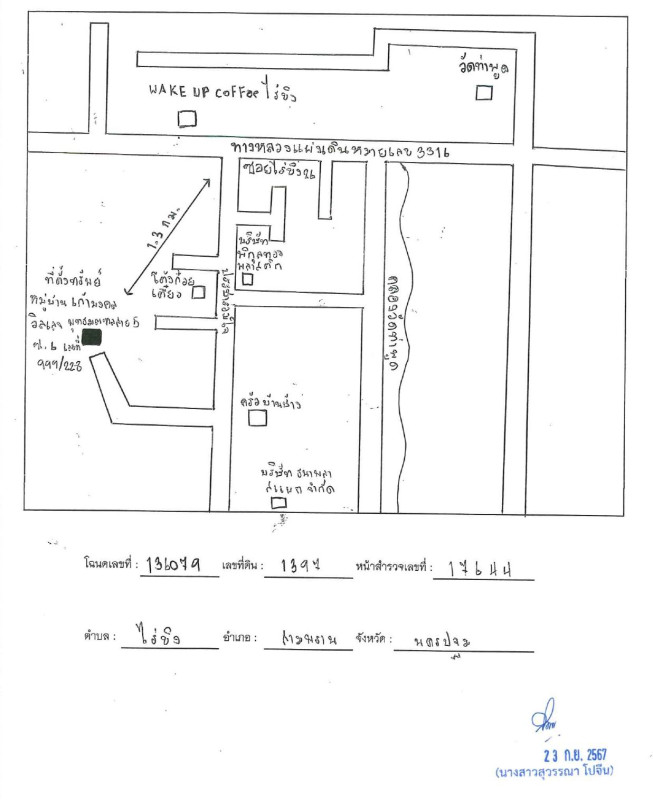 วัดท่าพูด
WAKE UP COFFee ไร่ขิง
ทางหลวงแผ่นดินหมายเลข 3316
ซอยไร่ขิง
1.3 กม.
บริษัท
พิกุลทอง
พลาสติก
ที่ตั้งทรัพย์
หมู่บ้าน
พุทธมณฑลสาย 5
ม. 6 เลขที่
999/228
เตี๋ยว
คลองวัดท่าพูด
ครัวบ้าน
บริษัท
จำกัด
โฉนดเลขที่ : 136079 เลขที่ดิน : 1397 หน้าสำรวจเลขที่ : 17644
ตำบล : ไร่ขิง อำเภอ : สามพราน จังหวัด : นครปฐม
23 ก.ย. 2567
(นางสาวสุวรรณา โปจีน)